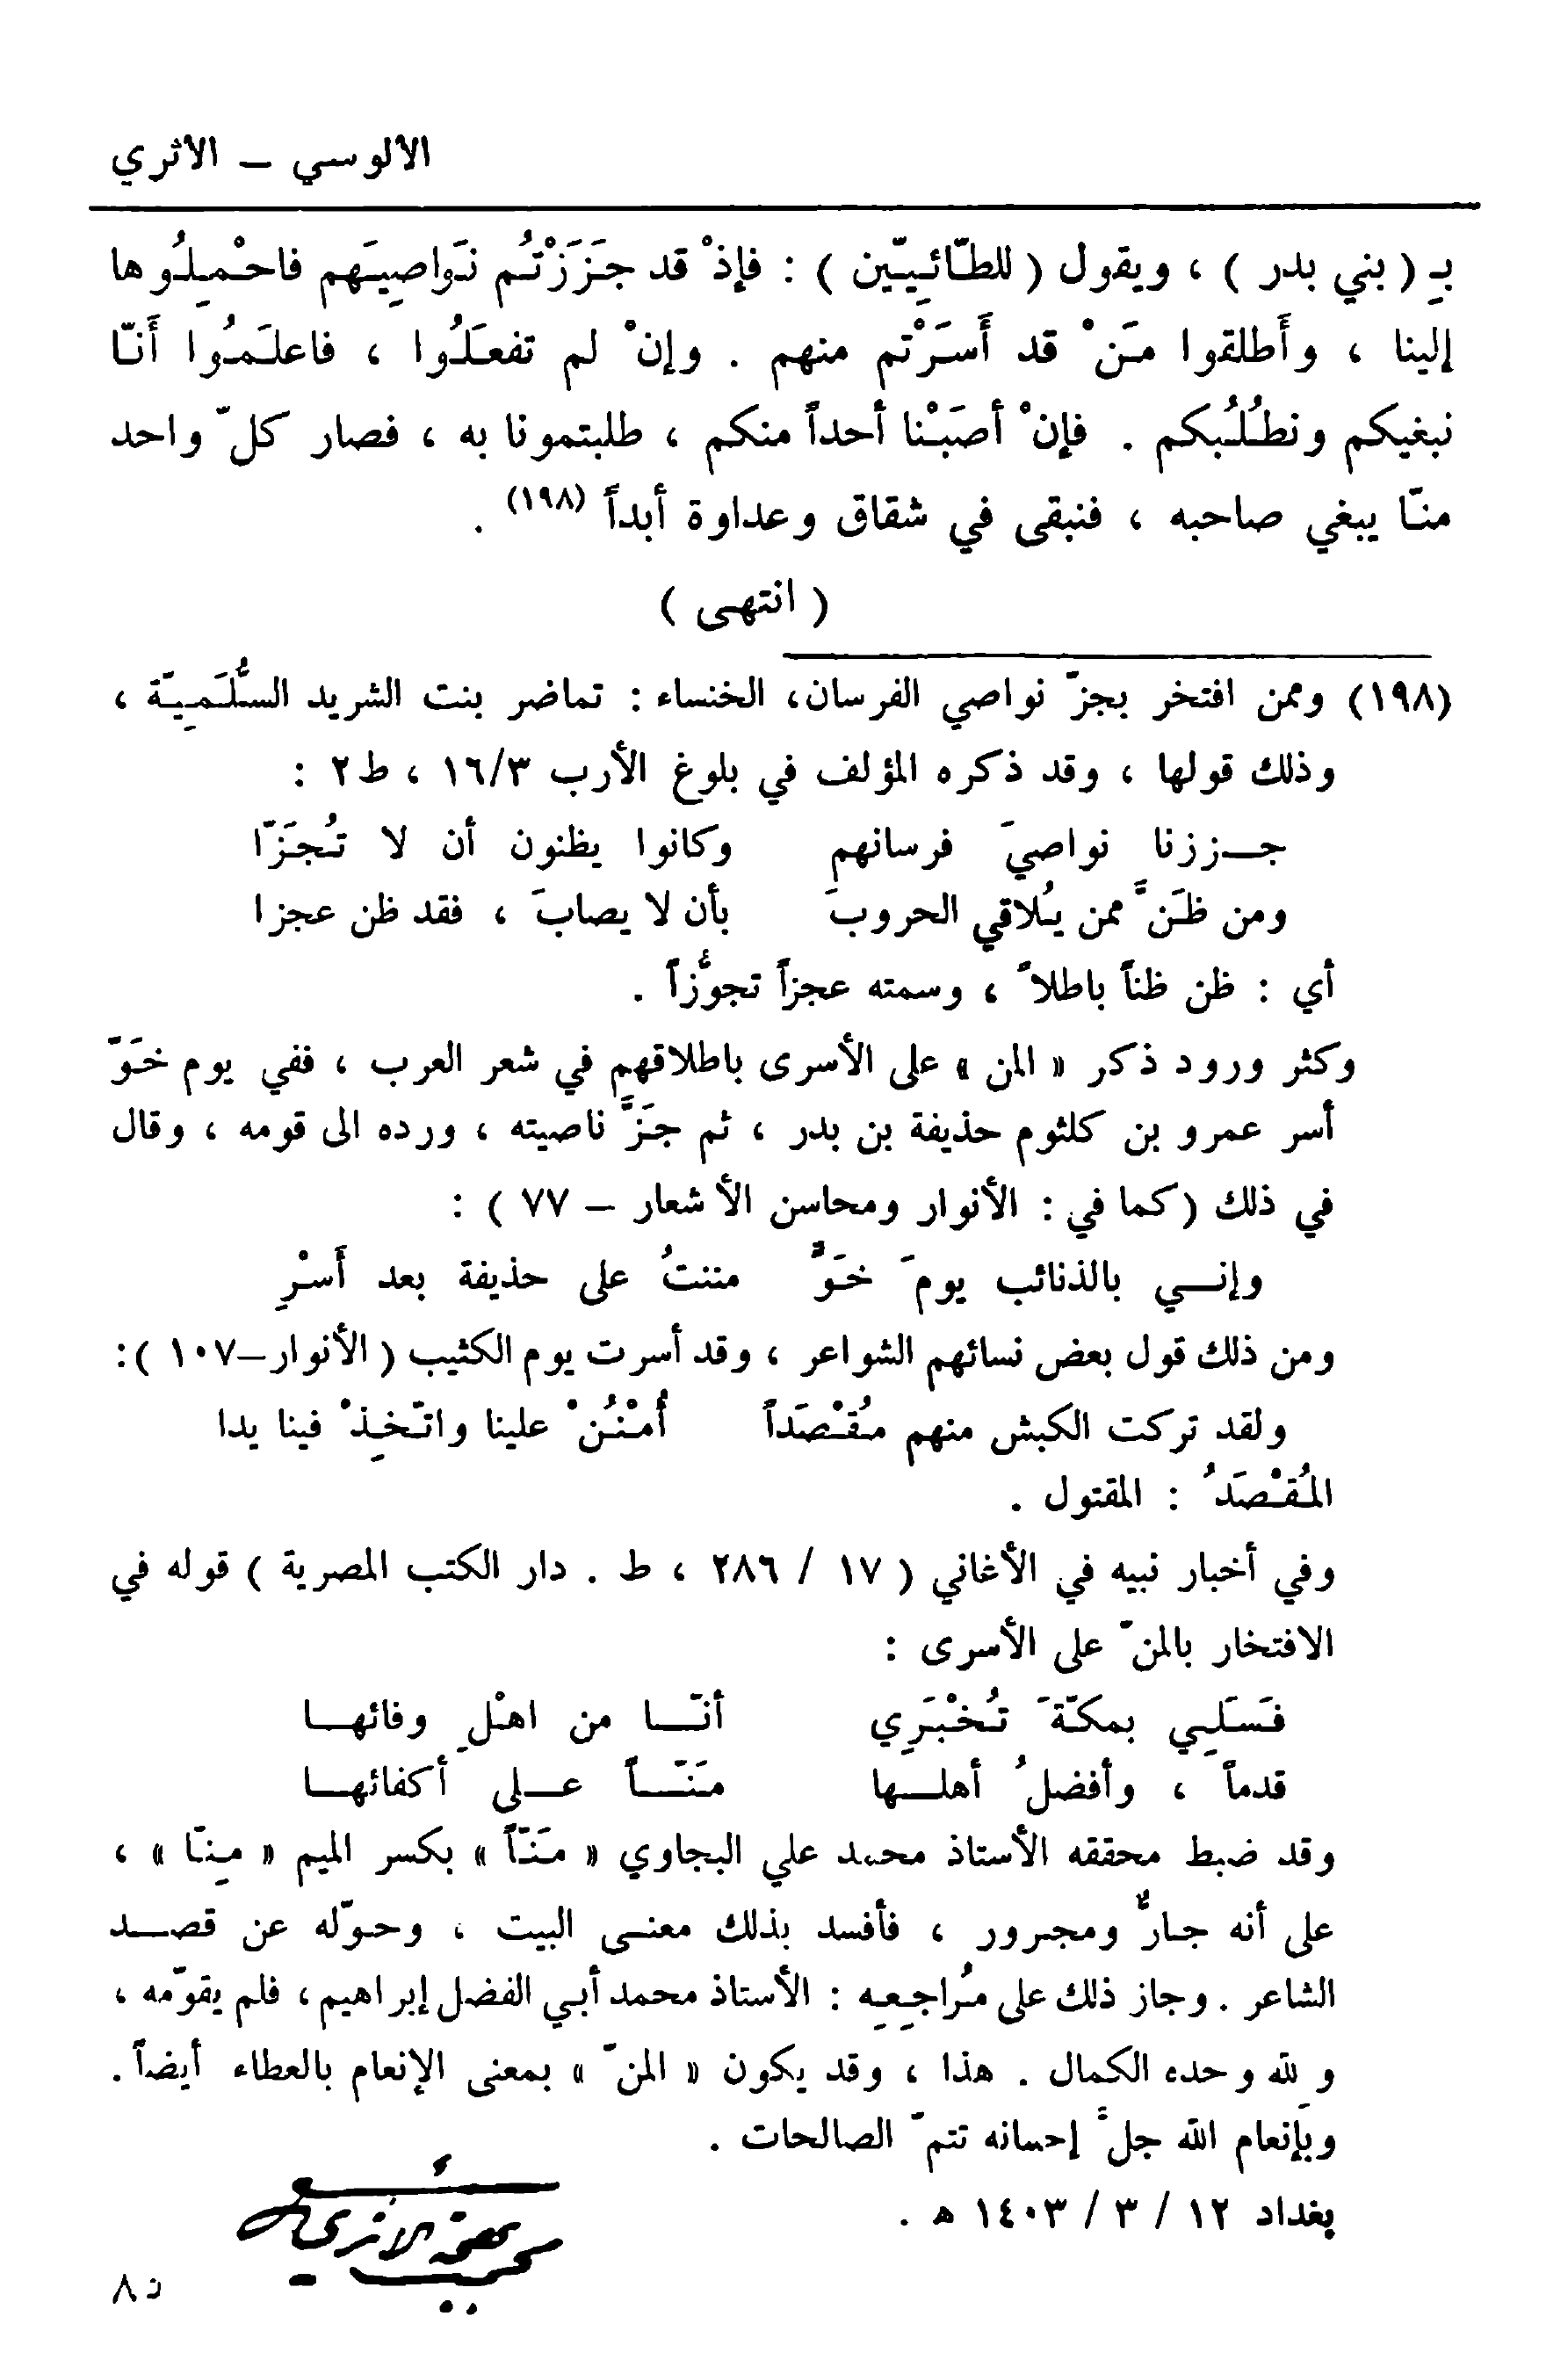 الالوسي – الاثري
بـِ ( بني بدر ) ، ويقول ( للطّائيّين ) : فإذْ قد جَزَزْتُم نَواصِيَهم فاحْمِلُوها
إلينا ، وأَطلقوا مَنْ قد أَسَرْتم منهم . وإنْ لم تفعَلُوا ، فاعلَمُوا أَنّا
نبغيكم ونطُلُبكم . فإنْ أصَبْنا أحداً منكم ، طلبتمونا به ، فصار كلّ واحد
منّا يبغي صاحبه ، فنبقى في شقاق وعداوة أبداً (١٩٨) .
( انتهى )
(١٩٨) وممن افتخر بجزّ نواصي الفرسان، الخنساء : تماضر بنت الشريد السُّلَمِيّة ،
وذلك قولها ، وقد ذكره المؤلف في بلوغ الأرب ١٦/٣ ، ط٢ :
جــززنا نواصيَ فرسانهم وكانوا يظنون أن لا تُجَزّا
ومن ظَنَّ ممن يُلاقي الحروبَ بأن لا يصابَ ، فقد ظن عجزا
أي : ظن ظناً باطلاً ، وسمته عجزاً تجوُّزاً .
وكثر ورود ذكر « المن » على الأسرى باطلاقهم في شعر العرب ، ففي يوم خَوّ
أسر عمرو بن كلثوم حذيفة بن بدر ، ثم جَزَّ ناصيته ، ورده الى قومه ، وقال
في ذلك (كما في : الأنوار ومحاسن الأشعار – ٧٧ ) :
وإنــي بالذنائب يومَ خَوٍّ مننتُ على حذيفة بعد أَسْرِ
ومن ذلك قول بعض نسائهم الشواعر ، وقد أسرت يوم الكثيب ( الأنوار–١٠٧ ):
ولقد تركت الكبش منهم مُقْصَداً أُمْنُنْ علينا واتّخِذْ فينا يدا
المُقْصَدُ : المقتول .
وفي أخبار نبيه في الأغاني ( ١٧ / ٢٨٦ ، ط . دار الكتب المصرية ) قوله في
الافتخار بالمنّ على الأسرى :
فَسَلِي بمكّةَ تُخْبَرِي أنّــا من اهْلِ وفائهــا
قدماً ، وأفضلُ أهلــها مَنّــاً عــلى أكفائهــا
وقد ضبط محققه الأستاذ محمد علي البجاوي « مَنّاً » بكسر الميم « مِنّا » ،
على أنه جارٌّ ومجرور ، فأفسد بذلك معنــى البيت ، وحوّله عن قصــد
الشاعر . وجاز ذلك على مُراجِعِه : الأستاذ محمد أبي الفضل إبراهيم، فلم يقوّمه ،
ولله وحده الكمال . هذا ، وقد يكون « المنّ » بمعنى الإنعام بالعطاء أيضاً .
وبإنعام الله جلَّ إحسانه تتمّ الصالحات .
بغداد ١٢ / ٣ / ١٤٠٣ هـ .
محمد بهجة الأثري